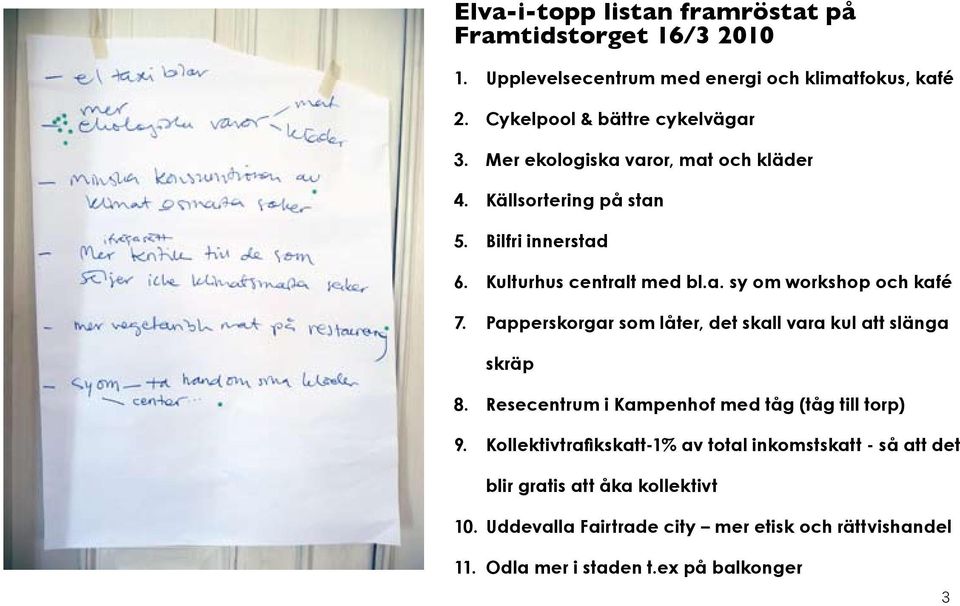 - el taxi blar
mer
- ekologiska varor - mat
- kläder
- minska konsumtionen av
klimat osmarta saker
ifrågasätt
- Mer kritik till de som
säljer icke klimatsmarta saker
- mer vegetarisk mat på restaurang
- sy om - ta hand om sina kläder
- center...
Elva-i-topp listan framröstat på
Framtidstorget 16/3 2010
1. Upplevelsecentrum med energi och klimatfokus, kafé
2. Cykelpool & bättre cykelvägar
3. Mer ekologiska varor, mat och kläder
4. Källsortering på stan
5. Bilfri innerstad
6. Kulturhus centralt med bl.a. sy om workshop och kafé
7. Papperskorgar som låter, det skall vara kul att slänga
skräp
8. Resecentrum i Kampenhof med tåg (tåg till torp)
9. Kollektivtrafikskatt-1% av total inkomstskatt - så att det
blir gratis att åka kollektivt
10. Uddevalla Fairtrade city – mer etisk och rättvishandel
11. Odla mer i staden t.ex på balkonger
3